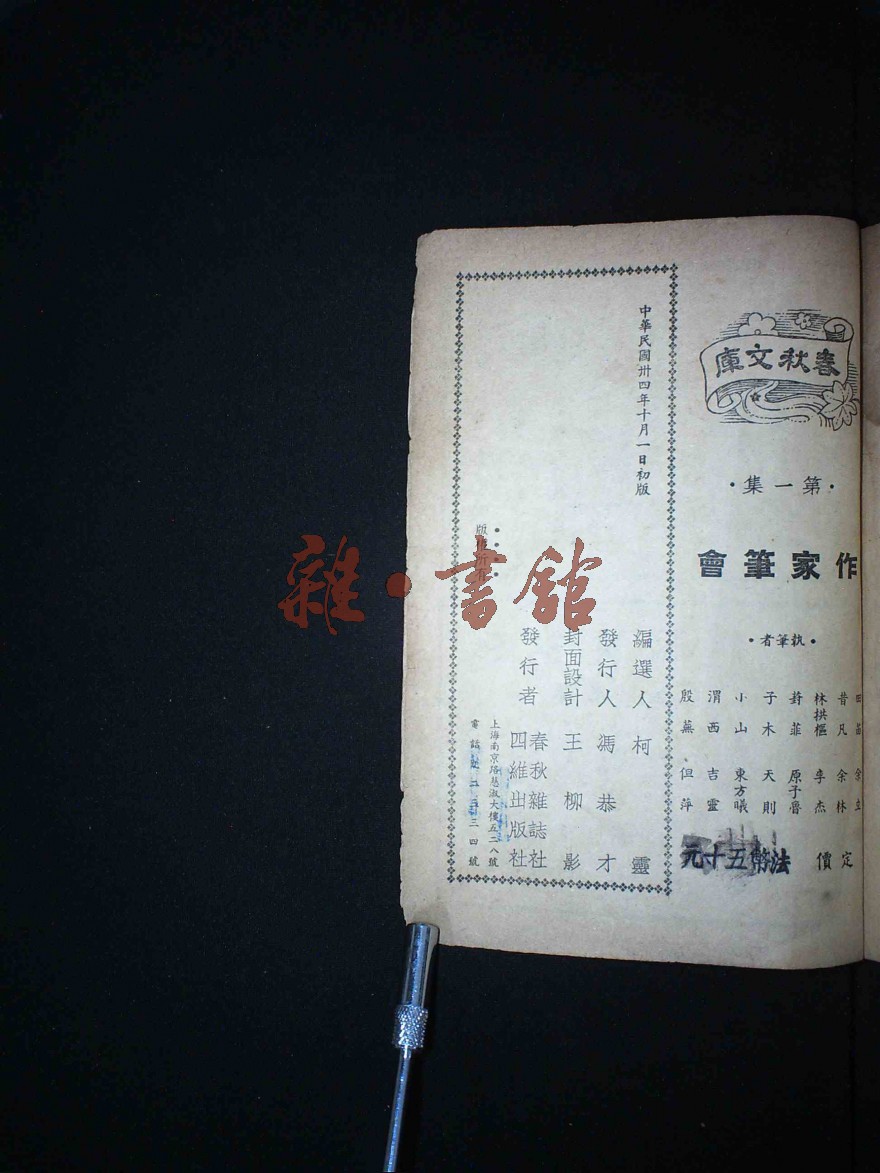 春秋文庫
·第一集·
作家筆會
·執筆者·
昔凡 余林
林拱樞 李杰
葑菲 原子魯
子木 天則
小山 東方曦
渭西 吉靈
殷蕪 但萍
定價 法幣五十元
中華民國卅四年十月一日初版
編選人 柯靈
發行人 馮恭才
封面設計 王柳影
發行者 春秋雜誌社
四維出版社
上海南京路慈淑大樓五二八號
電話
版權所有
雜·書館